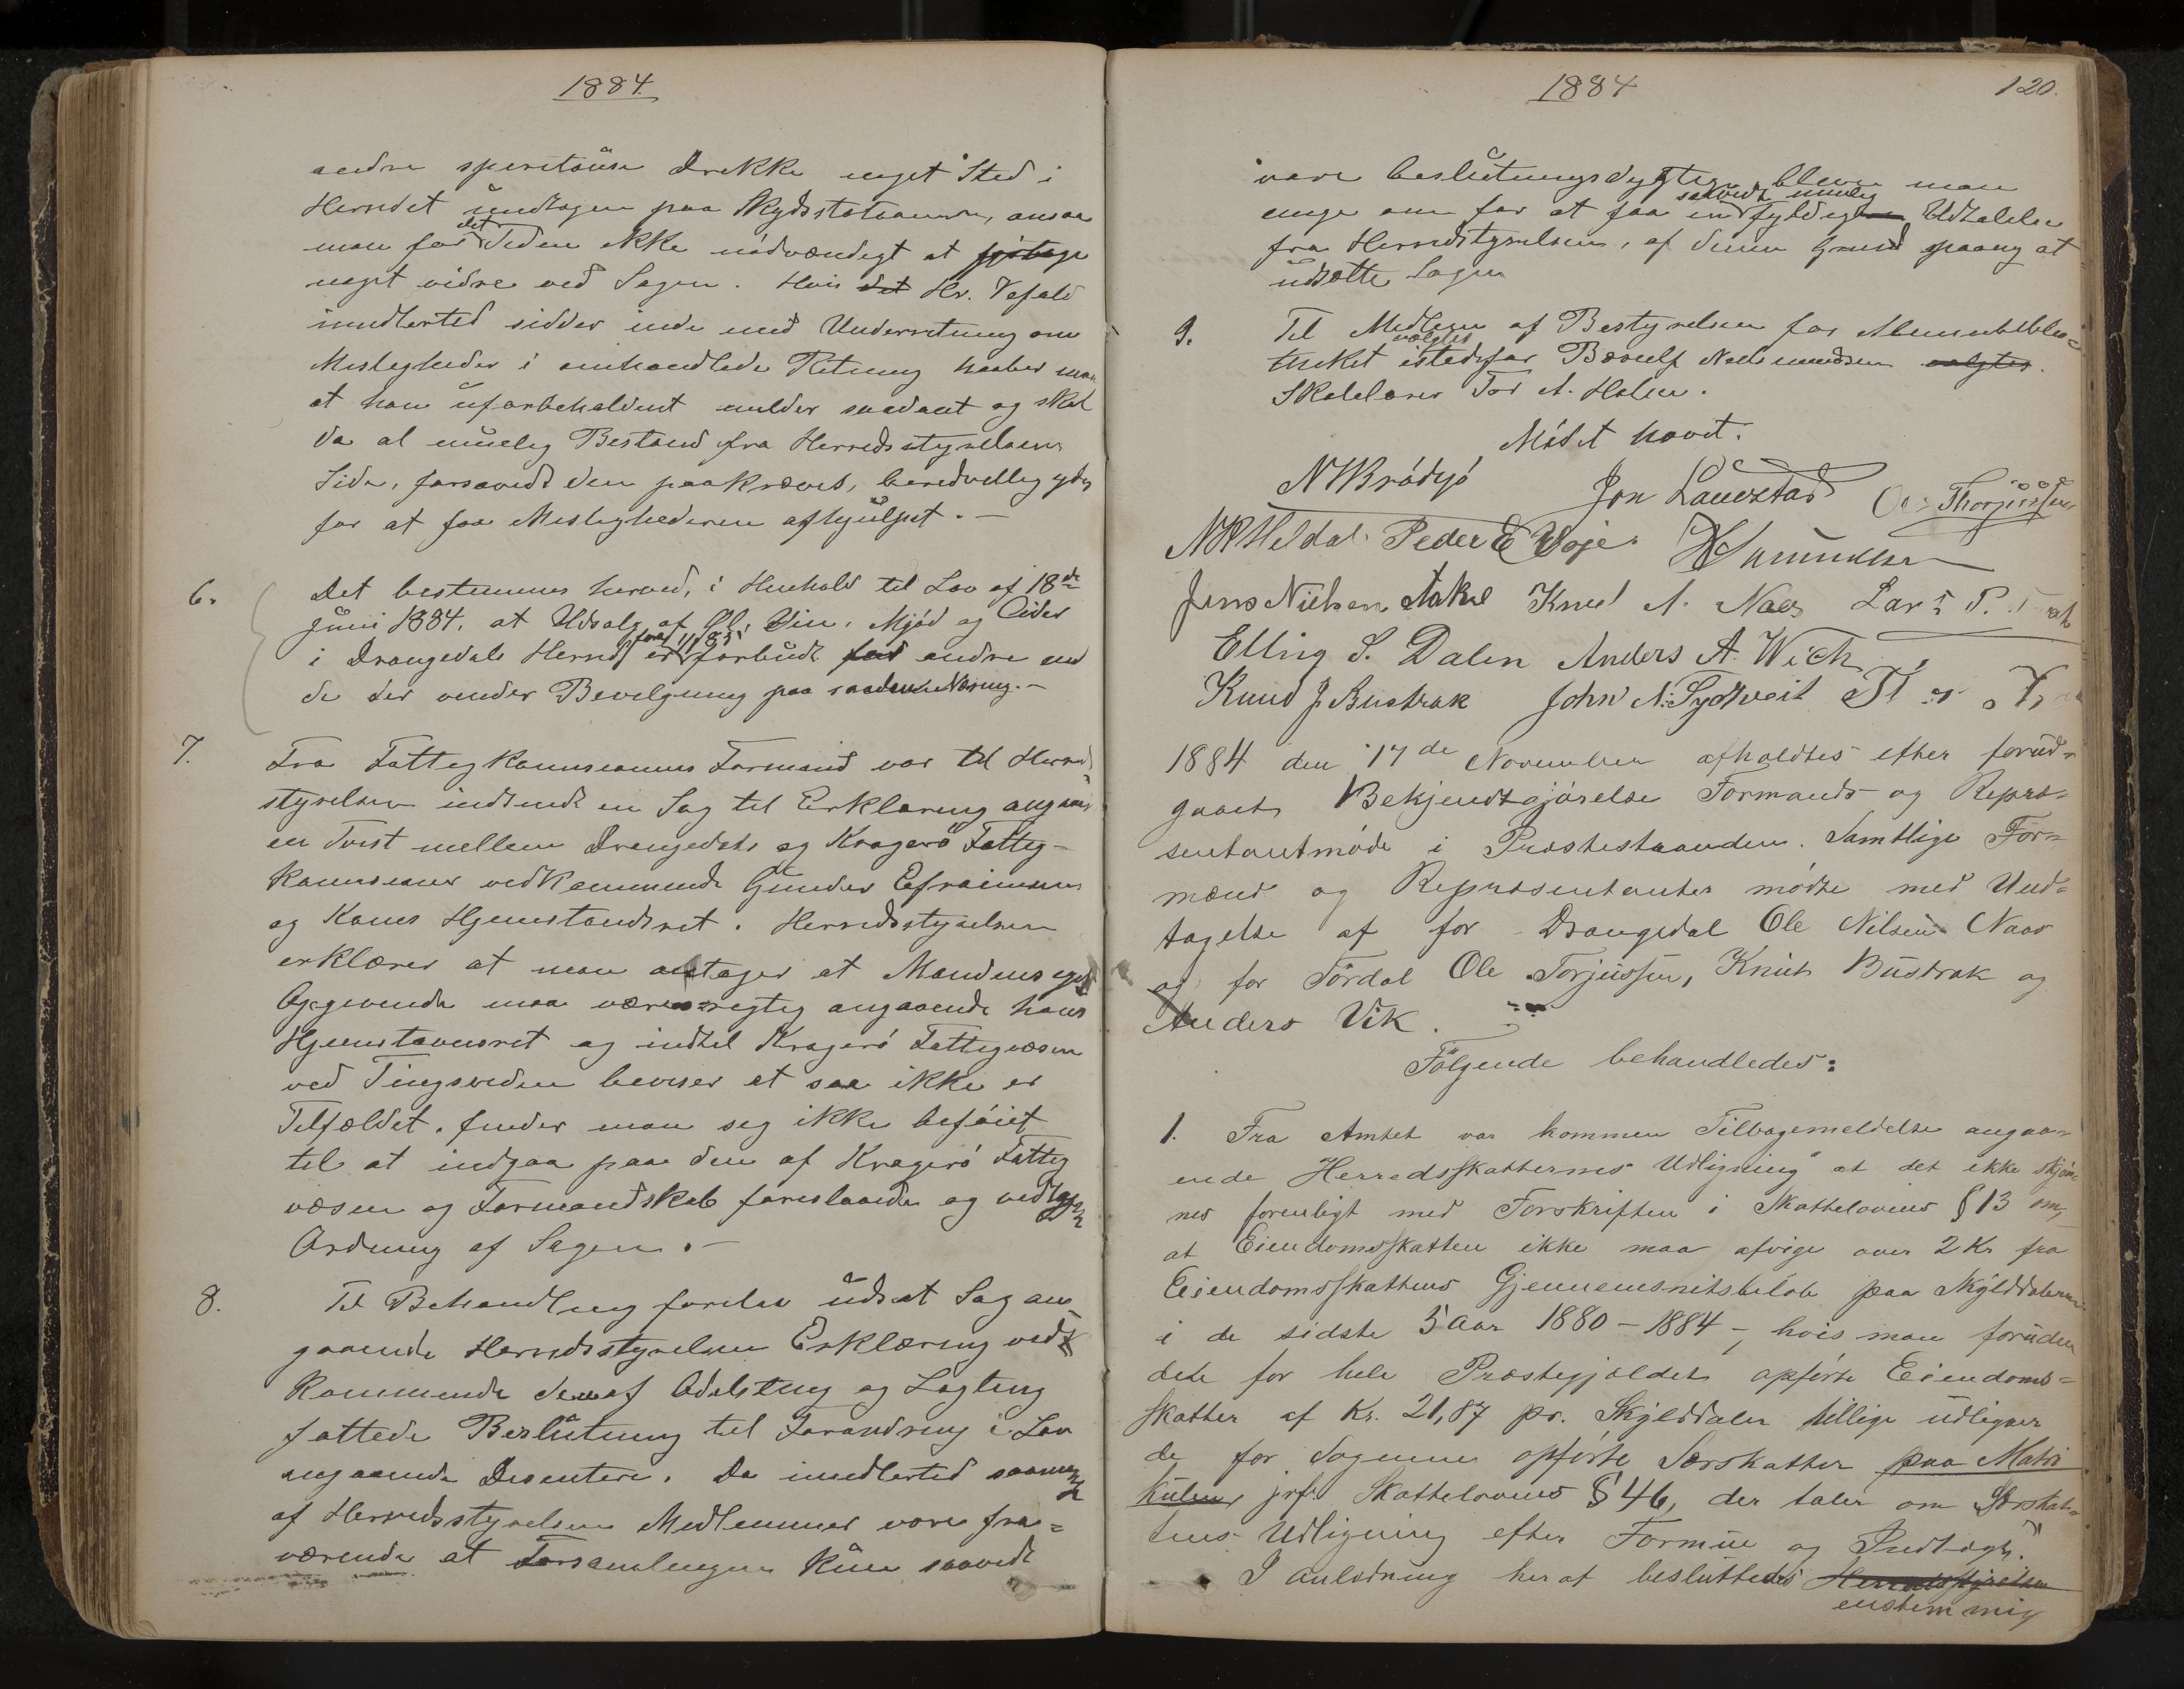 1884.
andre spirituøse Drikke noget Sted i
Herredet undtagen paa Skydsstationerne, ansaa
man for det Tiden ikke nödvændigt at foretage
noget videre ved Sagen. Hvis det Hr. Vefald
imidlertid sidder inde med Underretning om
Misligheder i omhandlede Retning haaber man
at han uforbeholdent melder saadant og skal
da al muelig Bistand fra Herredsstyrelsens
Side, forsaavidt den paakræves, beredvillig ydes
for at faa Mislighederne afhjulpet. —
6. Det bestemmes herved, i Henhold til Lov af 18de
Juni 1884, at Udsalg af Øl, Vin, Mjød og Cider
i Drangedals Herred er fra 1/1 85 forbudt for andre end
de der vinder Bevilgning paa saadan Næring. —
7. Fra Fattigkommissionens Formand var til Herreds
styrelsen indsendt en Sag til Erklæring angaaende
en Tvist mellem Drangedals og Kragerö Fattig-
kommissioner vedkommende Gunder Efraimsens
og Kones Hjemstandsret. Herredsstyrelsen
erklærer at man antager at Mandens eget
Opgivende maa være rigtig angaaende hans
Hjemstavnsret og indtil Kragerö Fattigvæsen
ved Tingsviden beviser at saa ikke er
Tilfældet, finder man sig ikke beföiet
til at indgaa paa den af Kragerö Fattig
væsen og Formandskab foreslaaede og vedtagne
Ordning af Sagen. —
8. Til Behandling forelaa udsat Sag an-
gaaende Herredsstyrelsens Erklæring ved-
kommende den af Odelsting og Lagting
fattede Beslutning til Forandring i Lov
angaaende Disentere. Da imidlertid saamange
af Herredsstyrelsens Medlemmer vare fra=
værende at Forsamlingen kun saavidt
1884
120.
vare beslutningsdygtig, bleve man
enige om for at faa en saavidt muelig fyldigere Udtalelse
fra Herredsstyrelsen, af denne Grund paany at
udsætte Sagen
9. Til Medlem af Bestyrelsen for Almuebiblio=
theket valgtes istedsfor Bærulf Nirisundsen valgtes
Skolelærer Tor A. Holen.
Mödet hævet.
N Brödsjö Jon Lauvstad Ole Thorjussen
N K Heldal Peder E Voje H Amundsen
Jens Nielsen Aakre Knud A. Naes Lars P.
Elling S. Dalen Anders A. Wich
Knud J Bustrak John N. Sydtveit
1884 den 17de November afholdtes efter forud=
gaaet Bekjendtgjörelse Formands- og Repræ=
sentantmöde i Præstestranden. Samtlige For=
mænd og Repræsentanter mödte med Und=
tagelse af for Drangedal Ole Nilsen Naas
og for Tördal Ole Torjussen, Knut Bustrak og
Anders Vik.
Fölgende behandledes:
1. Fra Amtet var kommen Tilbagemeldelse angaa=
ende Herredsskatternes Udligning "at det ikke skjøn
nes foreneligt med Forskriften i Skattelovens § 13 om,
at Eiendomsskatten ikke maa afvige over 2 Kr fra
Eiendomsskattens Gjennemsnitsbelöb paa Skylddaleren
i de sidste 5 Aar 1880 – 1884 –, hvis man foruden
dete for hele Præstegjældet opförte Eiendoms=
skatter af Kr. 21,87 pr. Skylddaler tillige udligner
de for Sognene opförte Særskatter paa Matri
kulen, jvf. Skattelovens § 46, der taler om Særskat=
tens Udligning efter Formue og Indtægt."
I anledning heraf besluttedes Herredsstyrelsen
enstemmig